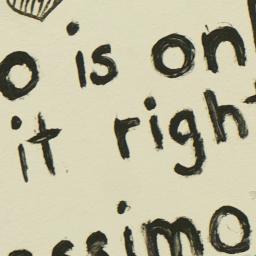 o is on
it right
essimo